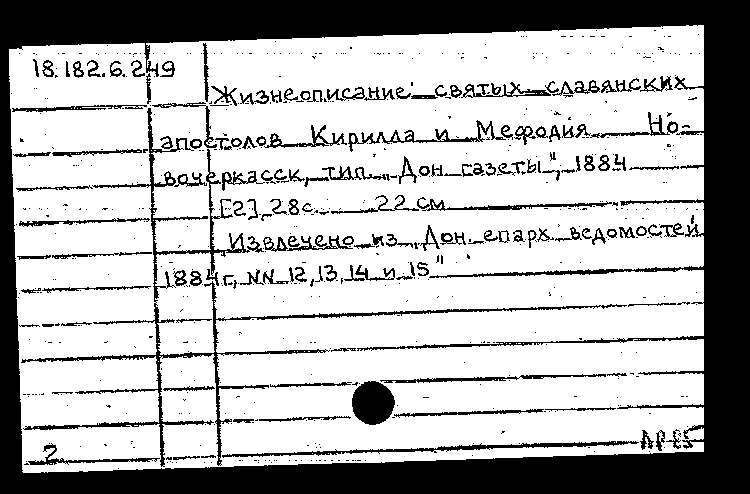 18.182.6.249
Жизнеописание святых славянских
апостолов Кирилла и Мефодия Но-
вочеркасск, тип. „Дон газеты", 1884
[2], 28с. 22 см
„Извлечено из „Дон. епарх ведомостей
1884г, NN 12, 13, 14 и 15"
2